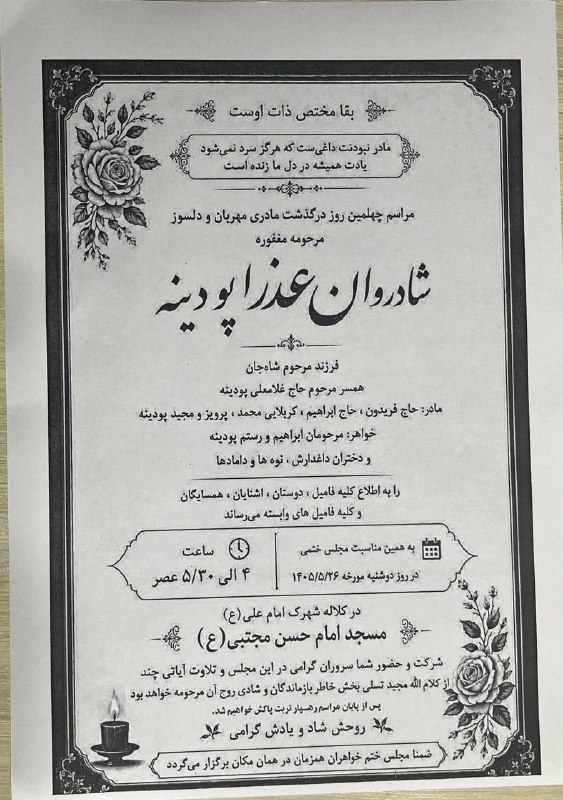 بقا مختص ذات اوست
مادر نبودنت داغی‌ست که هرگز سرد نمی‌شود
یادت همیشه در دل ما زنده است
مراسم چهلمین روز درگذشت مادری مهربان و دلسوز
مرحومه مغفوره
شادروان عذرا پودینه
فرزند مرحوم شاه‌جان
همسر مرحوم حاج غلامعلی پودینه
مادر: حاج فریدون ، حاج ابراهیم ، کربلایی محمد ، پرویز و مجید پودینه
خواهر: مرحومان ابراهیم و رستم پودینه
و دختران داغدارش ، نوه ها و دامادها
را به اطلاع کلیه فامیل ، دوستان ، اشنایان ، همسایگان
و کلیه فامیل های وابسته می‌رساند
به همین مناسبت مجلس ختمی
در روز دوشنبه مورخه ۱۴۰۵/۵/۲۶
ساعت
۴ الی ۵/۳۰ عصر
در کلاله شهرک امام علی(ع)
مسجد امام حسن مجتبی(ع)
شرکت و حضور شما سروران گرامی در این مجلس و تلاوت آیاتی چند
از کلام الله مجید تسلی بخش خاطر بازماندگان و شادی روح آن مرحومه خواهد بود
پس از پایان مراسم رهسپار تربت پاکش خواهیم شد.
روحش شاد و یادش گرامی
ضمنا مجلس ختم خواهران همزمان در همان مکان برگزار می‌گردد